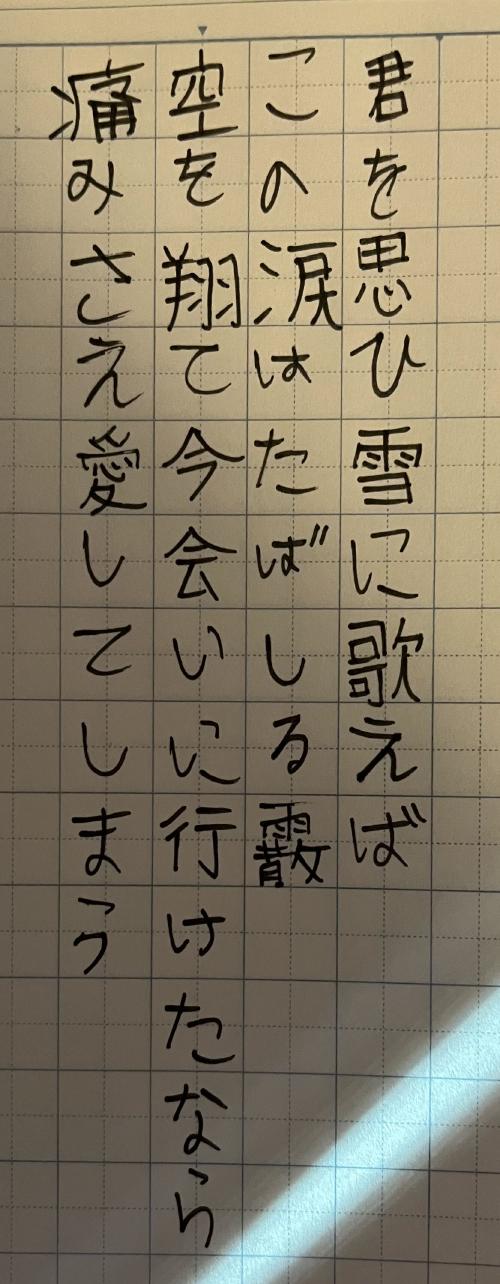 君を思ひ雪に歌えば
この涙はたばしる霰
空を翔て今会いに行けたなら
痛みさえ愛してしまう